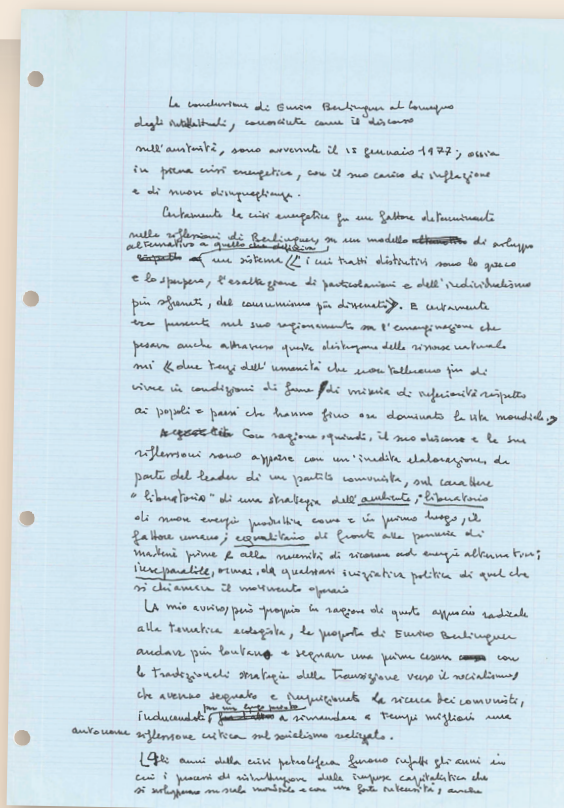 Le conclusione di Enrico Berlinguer al Convegno
degli intellettuali, conosciute come il discorso
sull'austerità, sono avvenute il 15 gennaio 1977; ossia
in piena crisi energetica, con il suo carico di inflazione
e di nuove disuguaglianze.
Certamente la crisi energetica fu un fattore determinante
nelle riflessioni di Berlinguer, su un modello di sviluppo
alternativo a quello che definiva
un sistema << i cui tratti distintivi sono lo spreco
e lo sperpero, l'esaltazione di particolarismi e dell'individualismo
più sfrenati, del consumismo più dissennato>>. E certamente
era presente nel suo ragionamento su l'emarginazione che
pesava anche attraverso questa distruzione delle risorse naturali
sui << due terzi dell'umanità che non tollerano più di
vivere in condizioni di fame / di miseria di inferiorità rispetto
ai popoli e paesi che hanno fino ora dominato la vita mondiale.>>
Con ragione, quindi, il suo discorso e le sue
riflessioni sono apparse con un'inedita elaborazione, da
parte del leader di un partito comunista, sul carattere
"liberatorio" di una strategia dell'ambiente, "liberatorio
di nuove energie produttive come è in primo luogo, il
fattore umano; egualitario di fronte alla penuria di
materie prime e alla necessità di ricorrere ad energie alternative;
inseparabile, ormai, da qualsiasi iniziativa politica di quel che
si chiamava il movimento operaio
A mio avviso, però proprio in ragione di questo approccio radicale
alla tematica ecologista, la proposta di Enrico Berlinguer
andava più lontano e segnava una prima cesura con
le tradizionali strategie della transizione verso il socialismo,
che avevano segnato e imprigionato la ricerca dei comunisti,
per un lungo
inducendoli, a rimandare a tempi migliori una
autonoma riflessione critica sul socialismo realizzato.
Gli anni della crisi petrolifera furono infatti gli anni in
cui i processi di ristrutturazione delle imprese capitalistiche che
si sviluppano su scala mondiale e con una forte intensità, anche